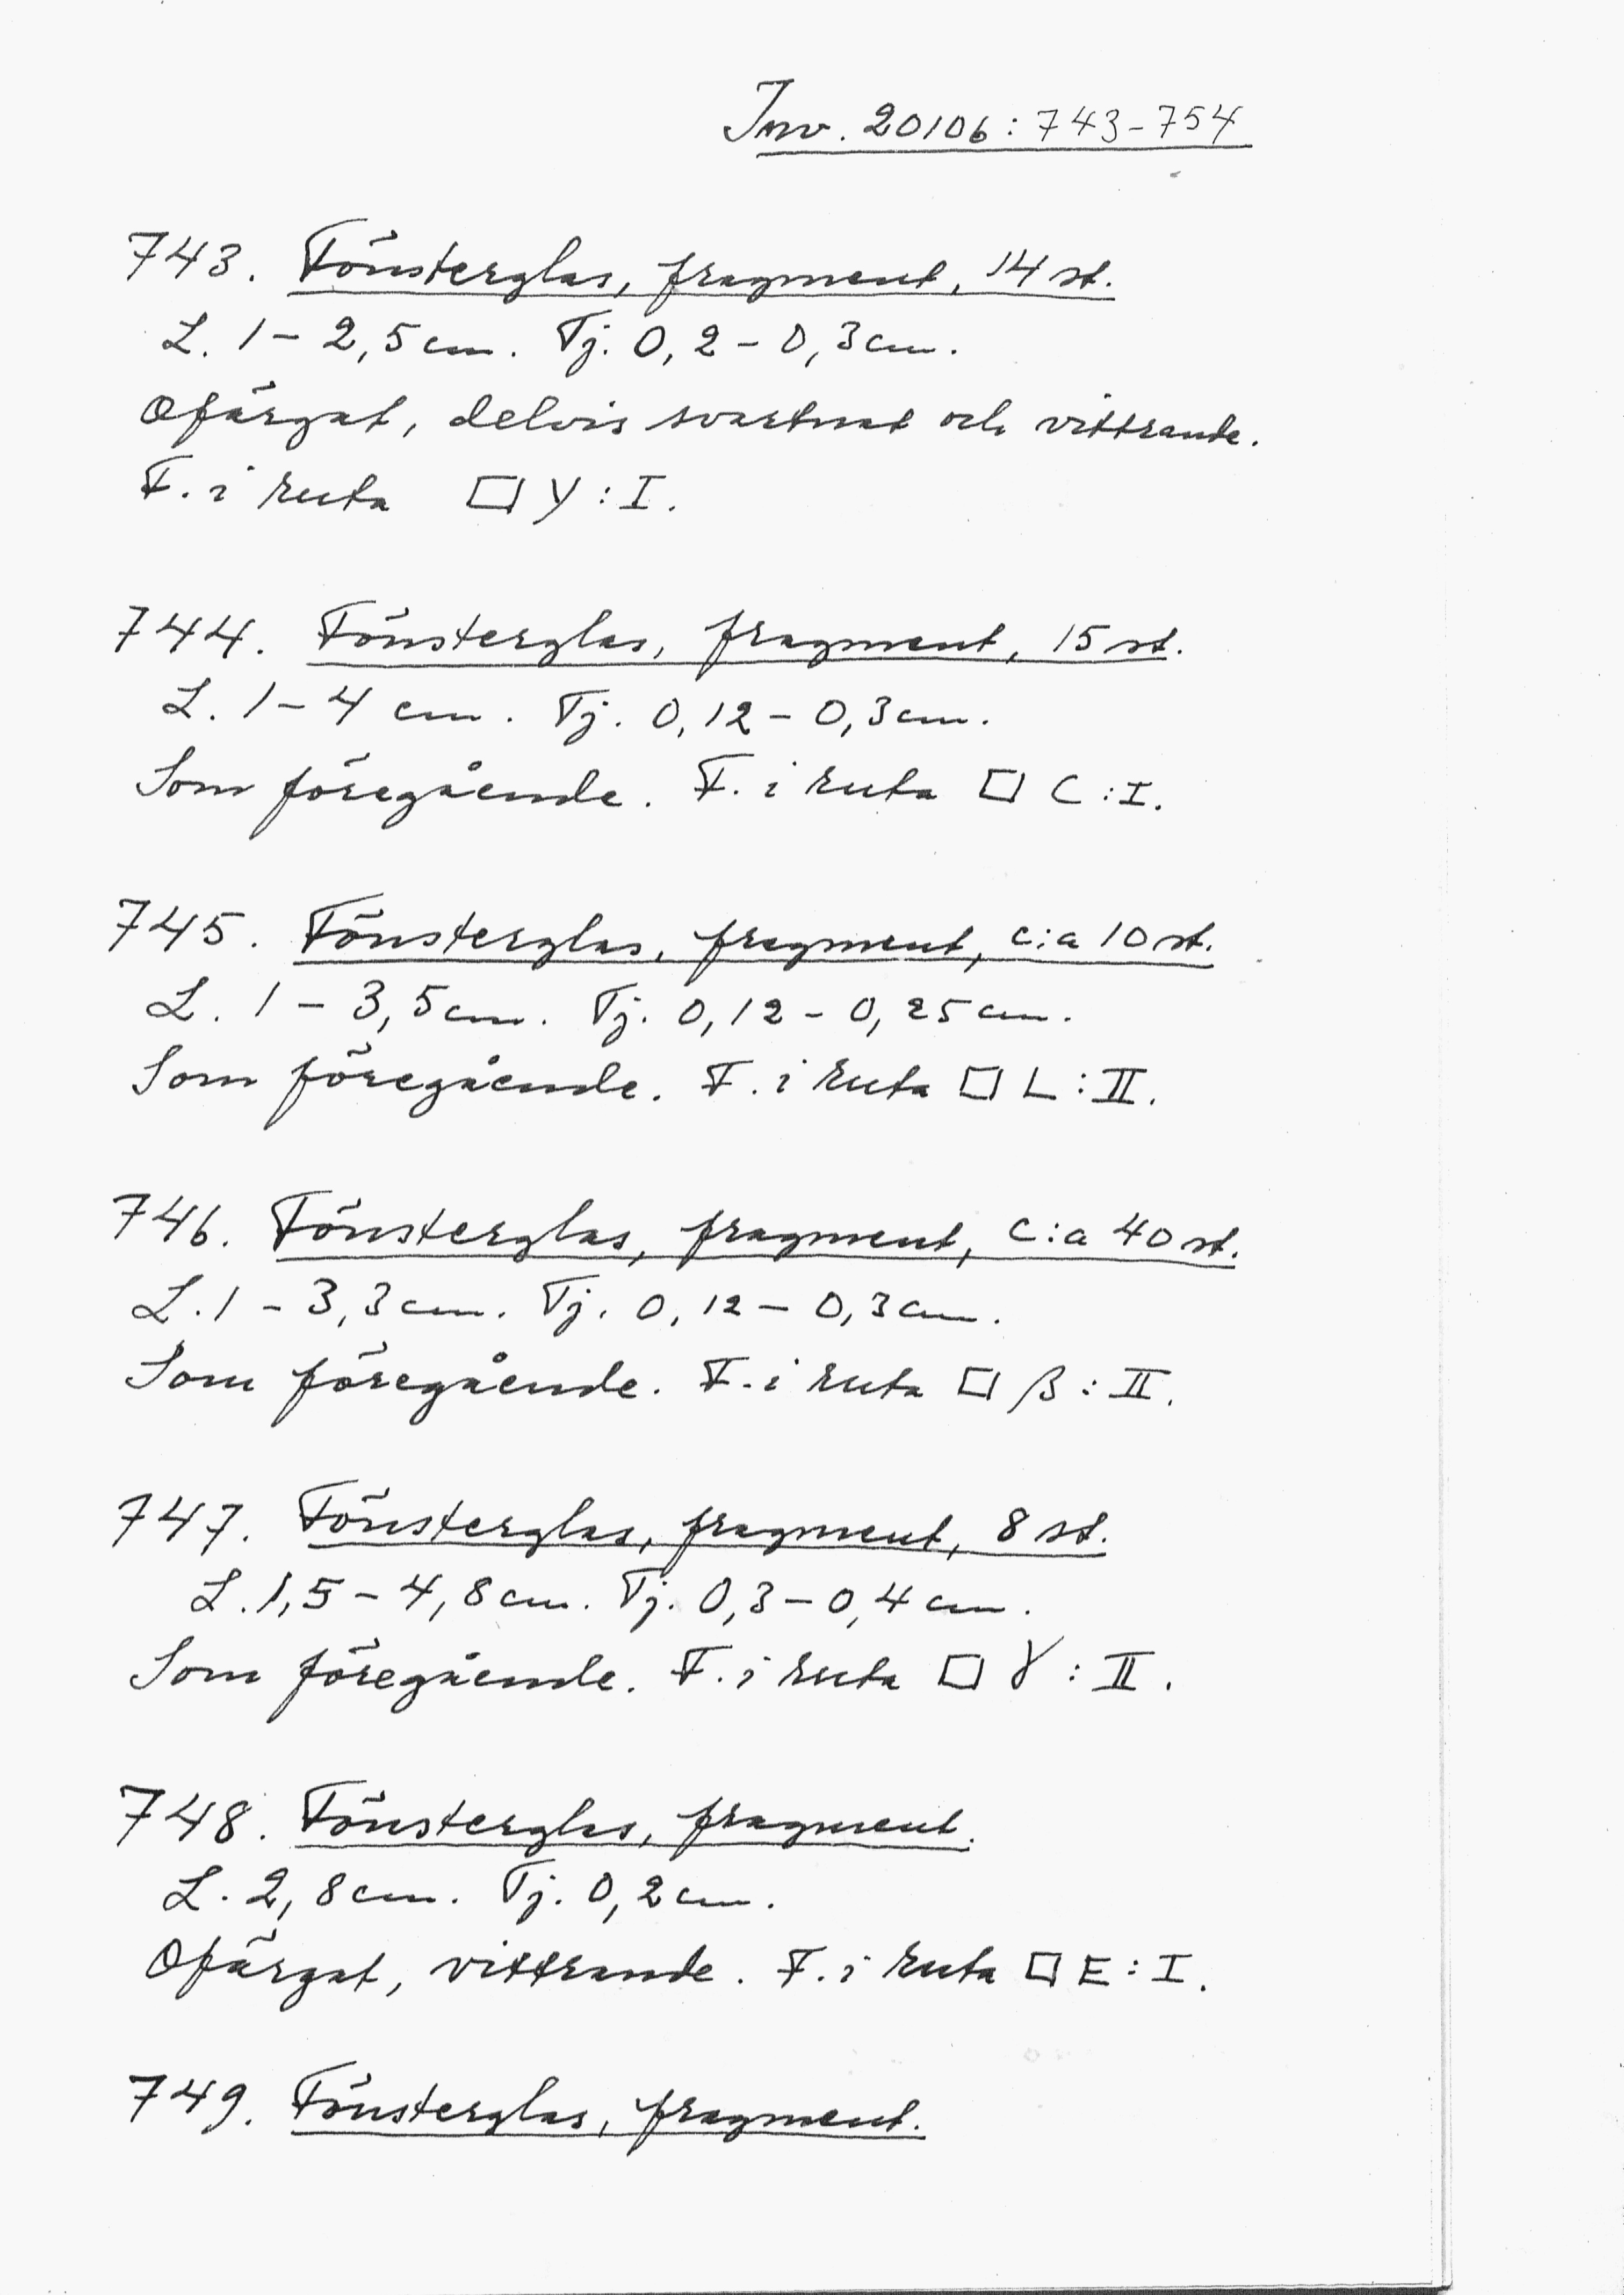 Inv. 20106:743-754
743. Fönsterglas, fragment, 14 st.
L. 1-2,5 cm. Tj. 0,2-0,3 cm.
Ofärgat, delvis svartnat och vittrande.
F. i ruta □ Y:I.
744. Fönsterglas, fragment, 15 st.
L. 1-4 cm. Tj. 0,12-0,3 cm.
Som föregående. F. i ruta □ C:I.
745. Fönsterglas, fragment, c:a 10 st.
L. 1-3,5 cm. Tj. 0,12-0,25 cm.
Som föregående. F. i ruta □ L:II.
746. Fönsterglas, fragment, c:a 40 st.
L. 1-3,3 cm. Tj. 0,12-0,3 cm.
Som föregående. F. i ruta □ β:II.
747. Fönsterglas, fragment, 8 st.
L. 1,5-4,8 cm. Tj. 0,3-0,4 cm.
Som föregående. F. i ruta □ γ:II.
748. Fönsterglas, fragment.
L. 2,8 cm. Tj. 0,2 cm.
Ofärgat, vittrande. F. i ruta □ E:I.
749. Fönsterglas, fragment.